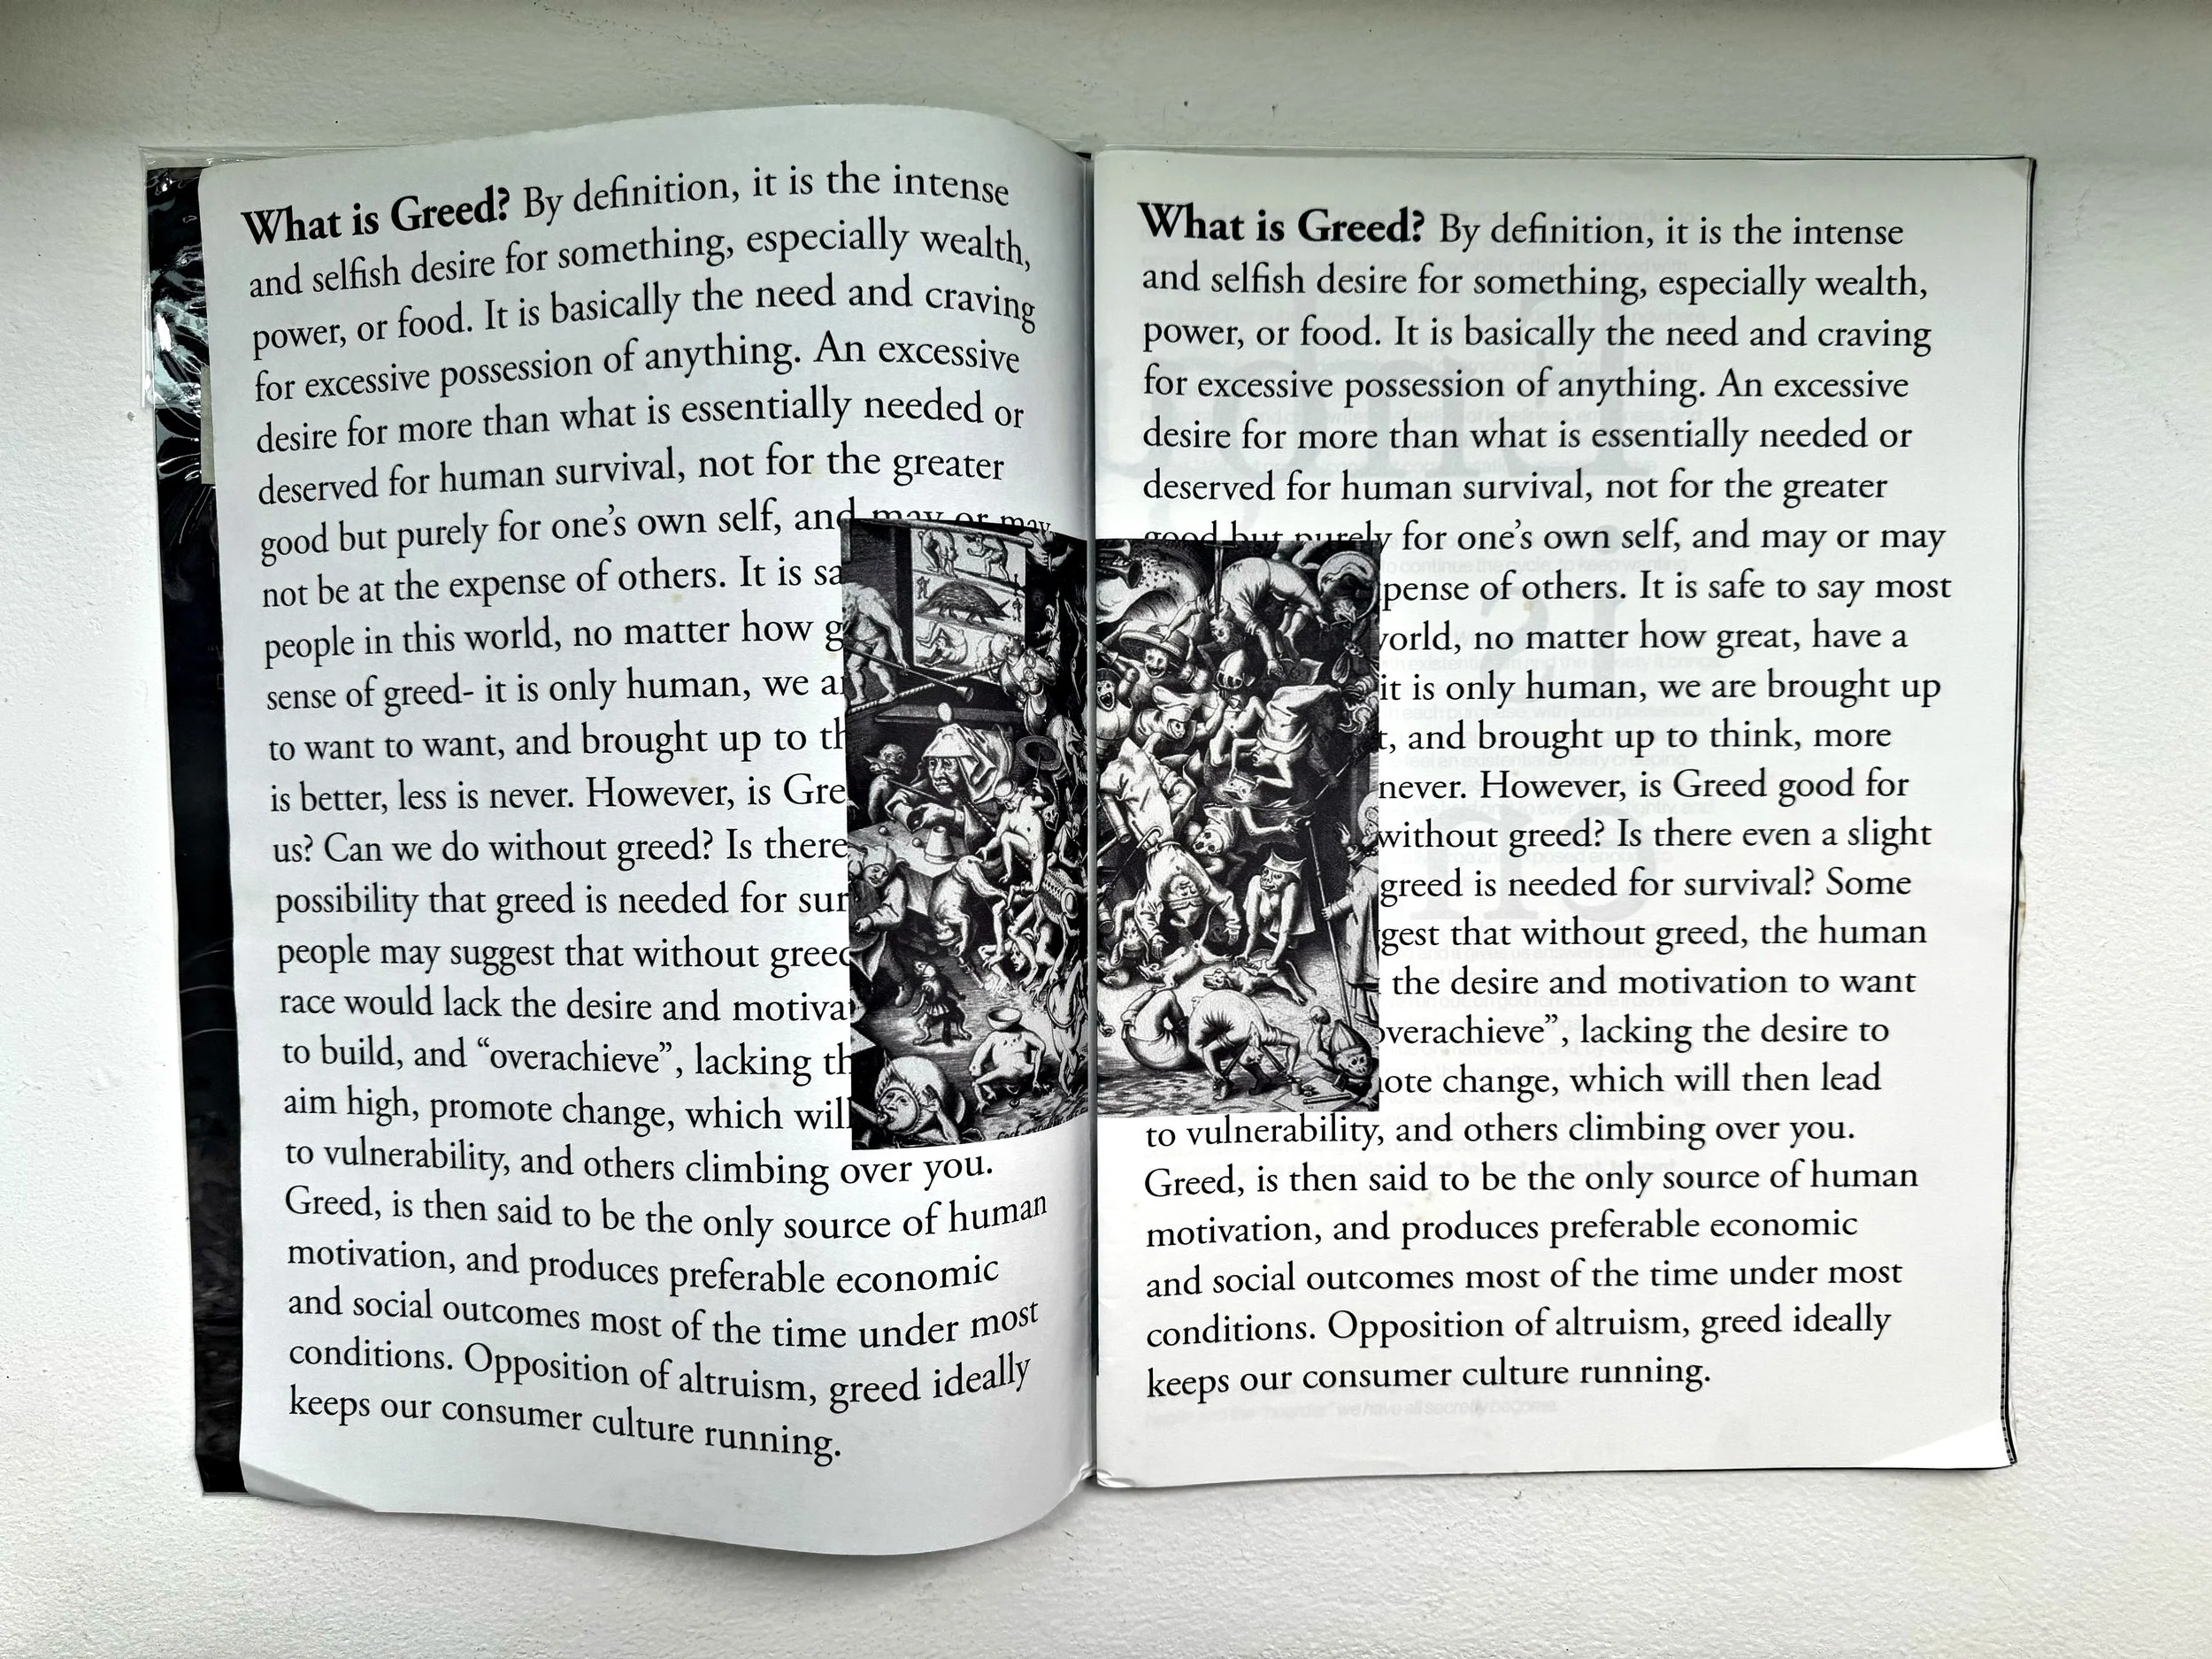 What is Greed? By definition, it is the intense
and selfish desire for something, especially wealth,
power, or food. It is basically the need and craving
for excessive possession of anything. An excessive
desire for more than what is essentially needed or
deserved for human survival, not for the greater
good but purely for one's own self, and may or may
not be at the expense of others. It is sa
people in this world, no matter how g
sense of greed- it is only human, we a
to want to want, and brought up to th
is better, less is never. However, is Gre
us? Can we do without greed? Is there
possibility that greed is needed for sur
people may suggest that without greed
race would lack the desire and motiva
to build, and “overachieve”, lacking th
aim high, promote change, which will
to vulnerability, and others climbing over you.
Greed, is then said to be the only source of human
motivation, and produces preferable economic
and social outcomes most of the time under most
conditions. Opposition of altruism, greed ideally
keeps our consumer culture running.
What is Greed? By definition, it is the intense
and selfish desire for something, especially wealth,
power, or food. It is basically the need and craving
for excessive possession of anything. An excessive
desire for more than what is essentially needed or
deserved for human survival, not for the greater
good but purely for one's own self, and may or may
pense of others. It is safe to say most
world, no matter how great, have a
it is only human, we are brought up
t, and brought up to think, more
never. However, is Greed good for
without greed? Is there even a slight
greed is needed for survival? Some
gest that without greed, the human
the desire and motivation to want
overachieve”, lacking the desire to
ote change, which will then lead
to vulnerability, and others climbing over you.
Greed, is then said to be the only source of human
motivation, and produces preferable economic
and social outcomes most of the time under most
conditions. Opposition of altruism, greed ideally
keeps our consumer culture running.